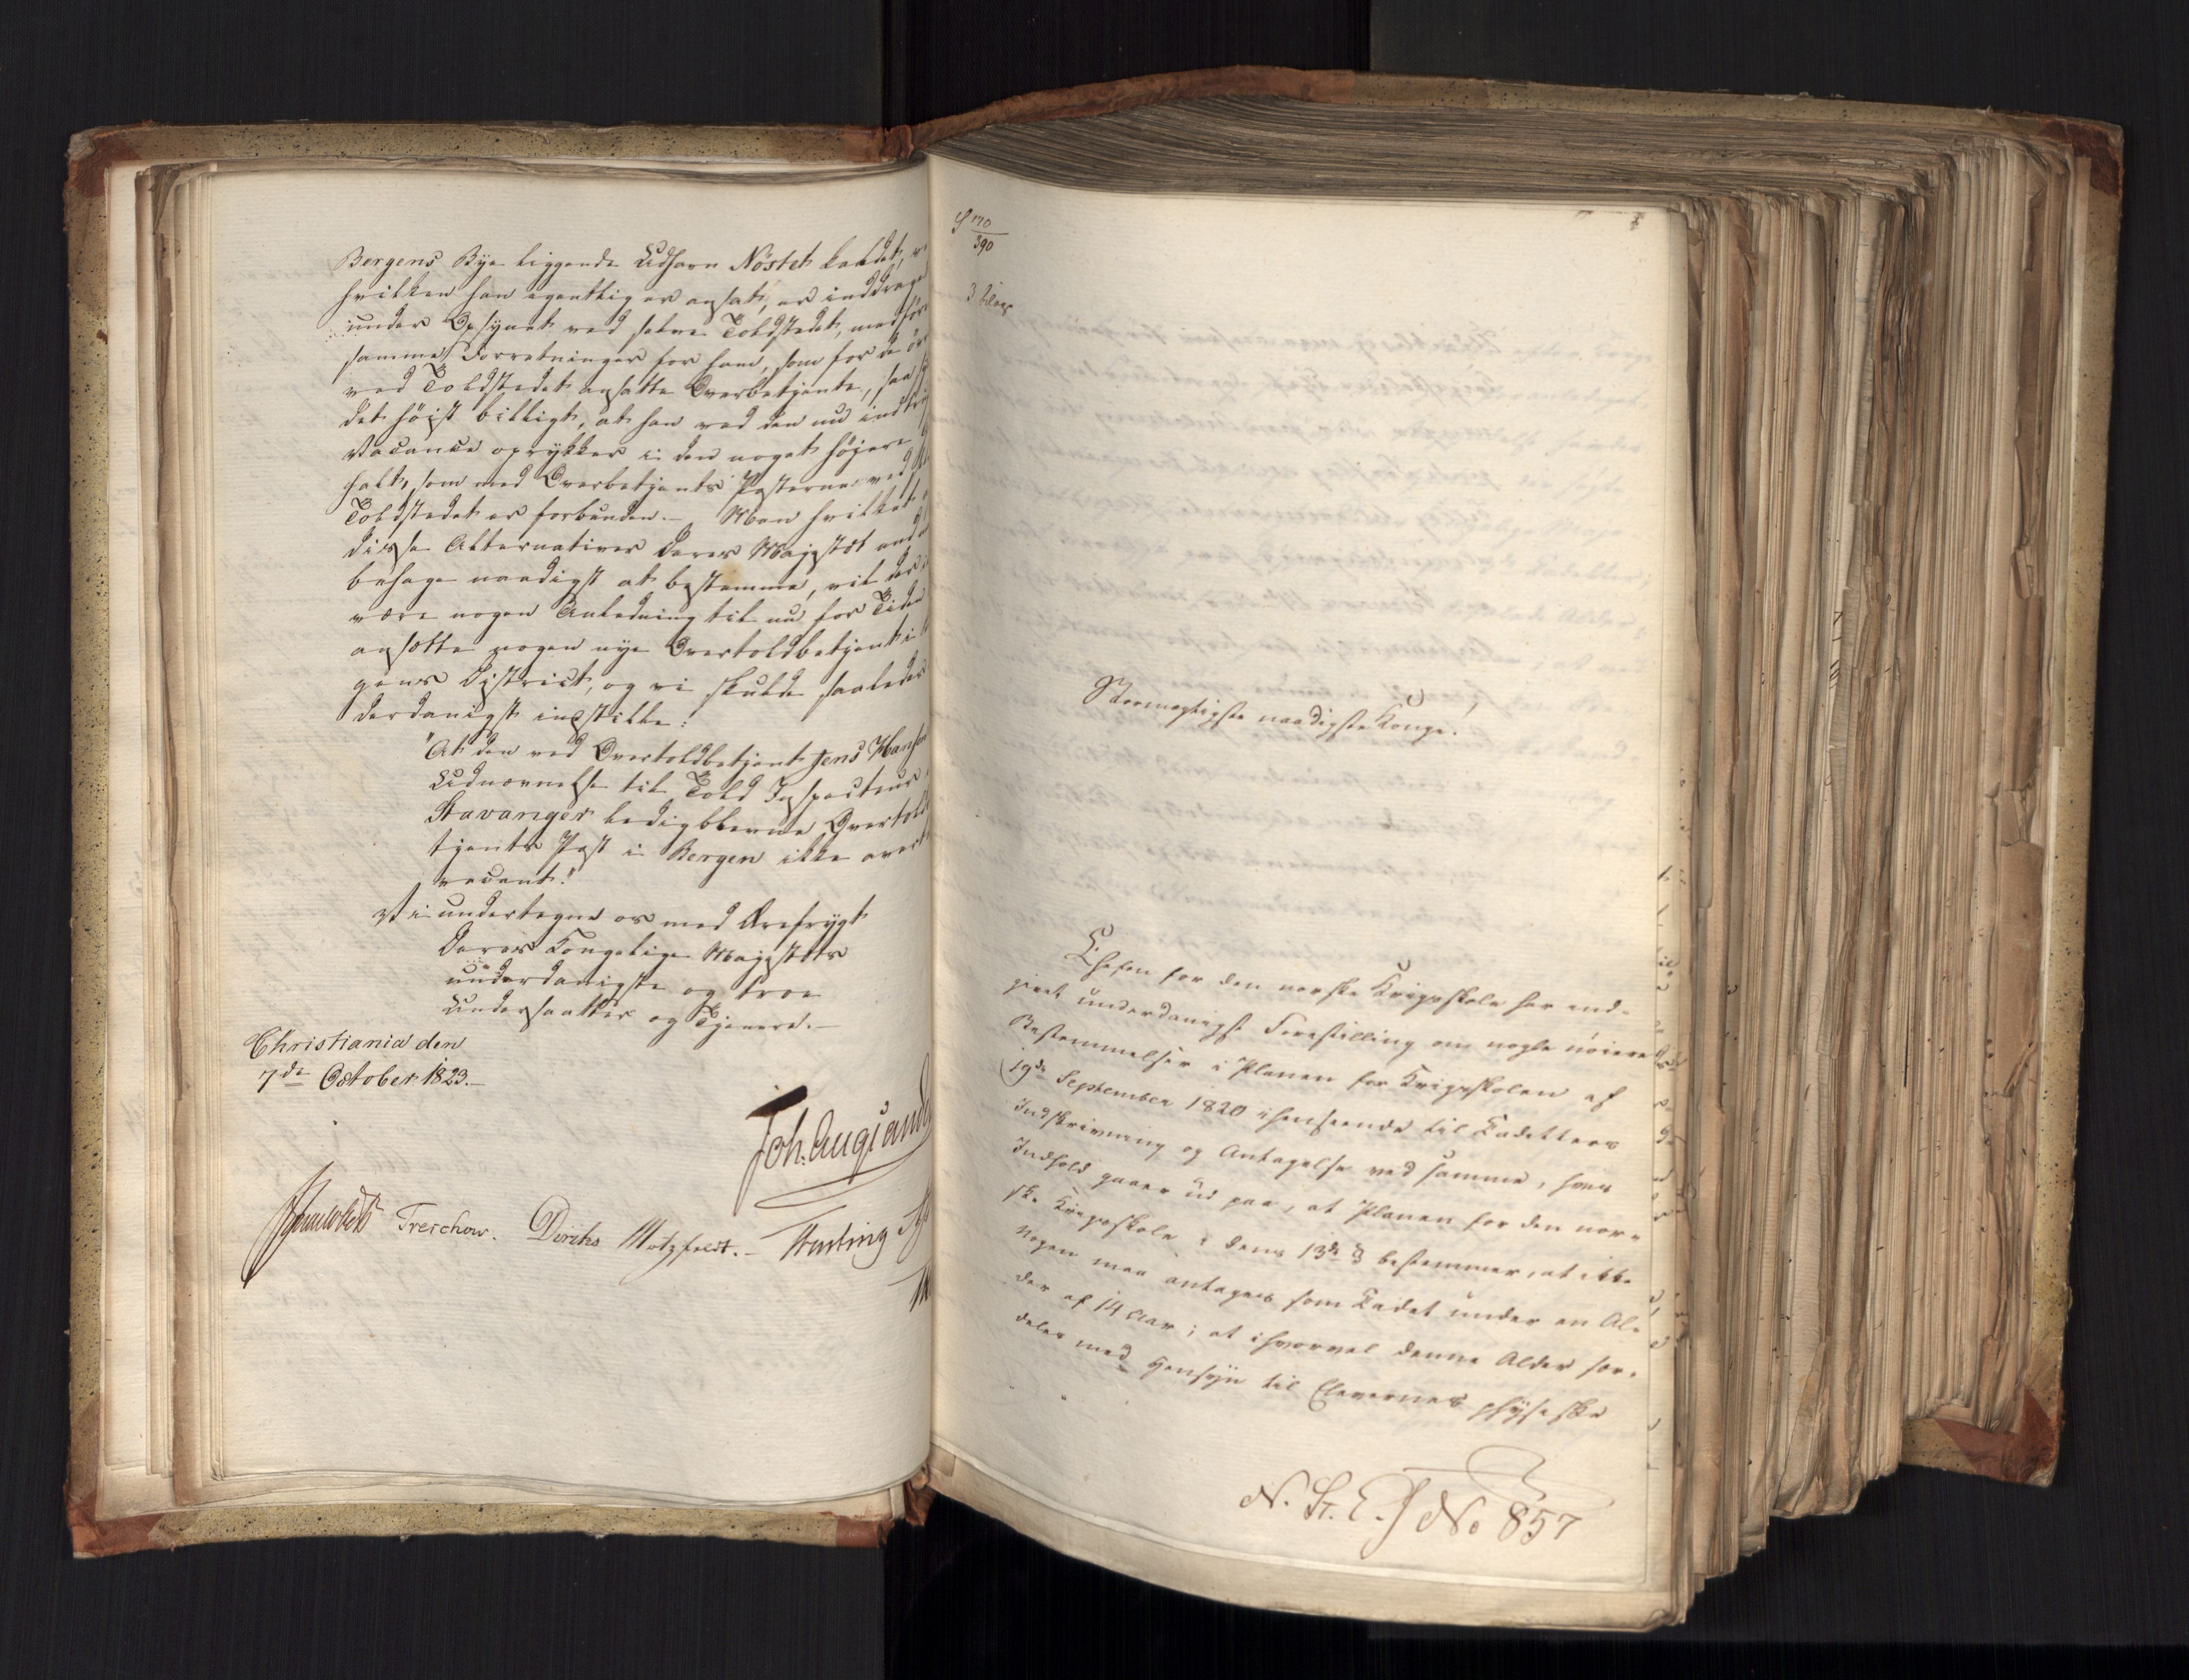 Bergens Bye liggende Udhavn Nöstet kaldet,
hvilken han egentlig er ansat, er inddrage
under Opsynet ved selve Toldstedet, medför
samme Forretninger for ham, som for de öv
ved Toldstedet ansatte Overbetjente, saa
det höist billigt, at han ved den nu indtr
Vacance oprykker i den noget höjere
halt, som med Overbetjents Posterne ved
Toldstedet er forbunden. – Men hvilket
disse Alternativer Deres Majestæt
behage naadigst at bestemme, vil der
være nogen Anledning til nu for Tiden
ansætte nogen nye Overtoldbetjent i
gens District, og vi skulde saaledes
derdanigst indstille:
"At den ved Overtoldbetjent Jens Hansen
Udnævnelse til Told Inspecteur
Stavanger ledigblevne Overtold
tjents Post i Bergen ikke
vacant."
Vi undertegne os med Ærefrygt
Deres Kongelige Majestæts
underdanigste og troe
Undersaatter og Tjenere. –
Christiania den
7de October 1823. –
Joh. Aug Sand
Treschow. Diriks Motzfeldt. –
S 170
390
3 bilage
Stormægtigste naadigste Konge!
Chefen for den norske Krigsskole har ind-
givet underdanigst Forestilling om nogle nöiere
Bestemmelser i Planen for Krigsskolen af
19de September 1820 ihenseende til Cadetters
Indskrivning og Antagelse ved samme, hvis
Indhold gaaer ud paa, at Planen for den nor-
ske Krigsskole i dens 13de § bestemmer, at ikke
nogen maa antages som Cadet under en Al-
der af 14 Aar; at ihvorvel denne Alder saa-
deles med Hensyn til Elevernes physiske
N. St. E. J No 857